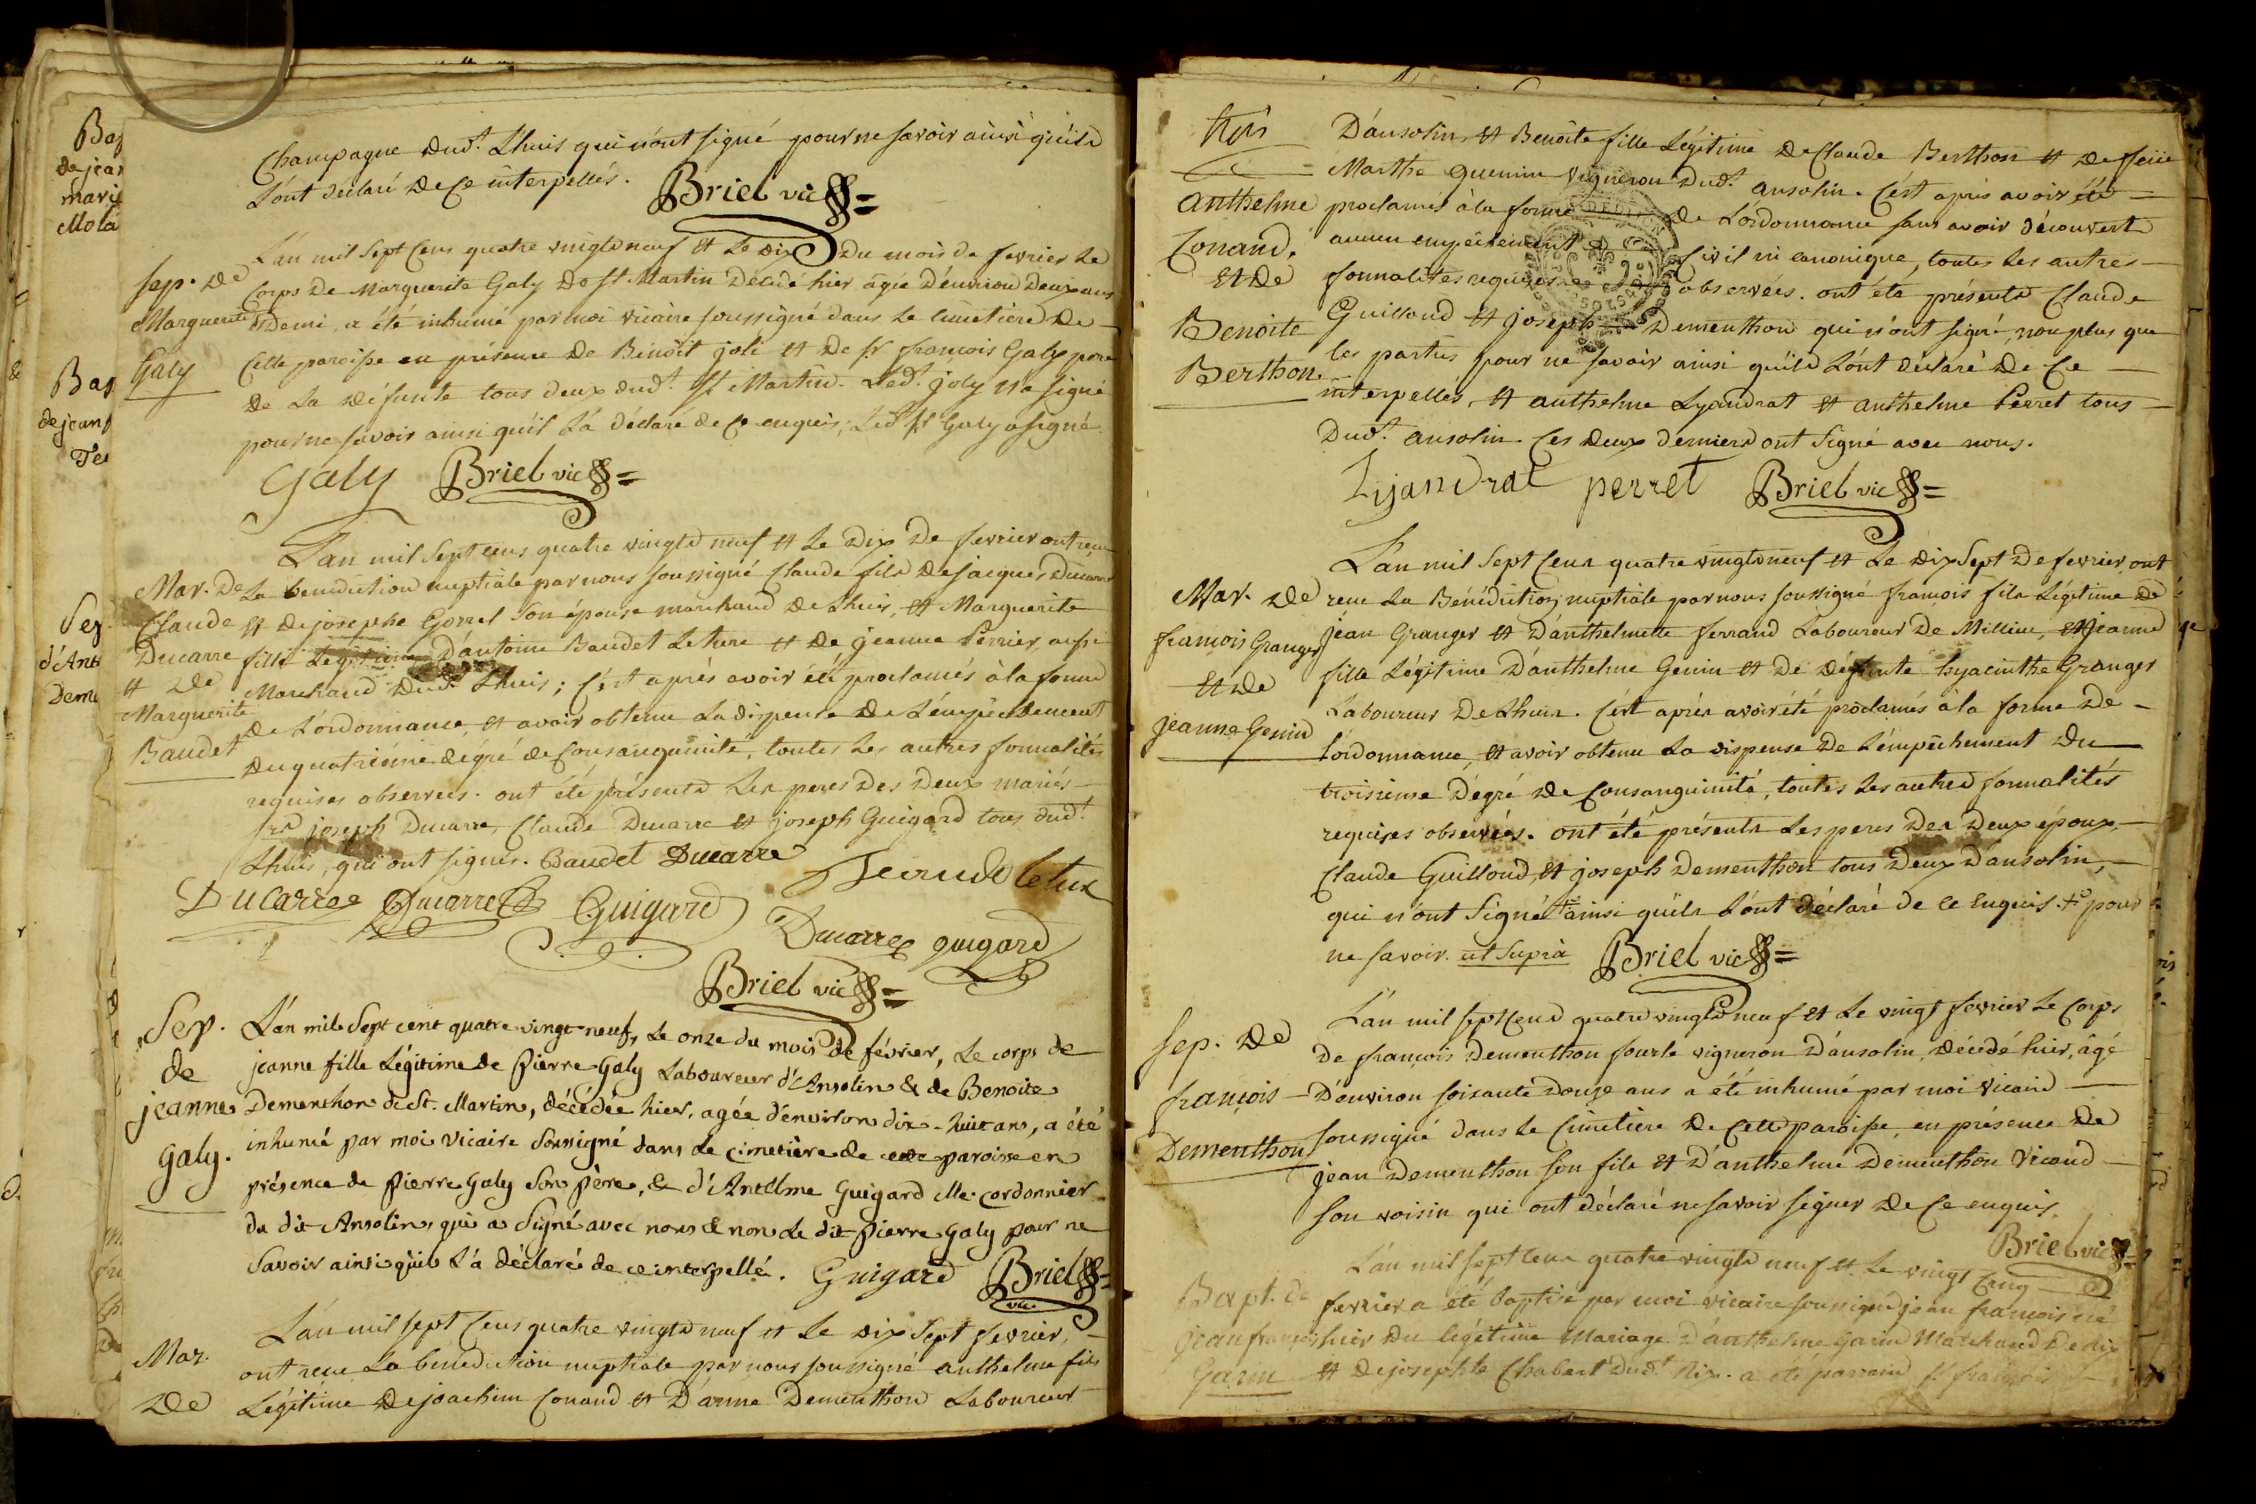 Champagne dud.t Lhuis qui n'ont signé pour ne savoir ainsi qu'ils
L'ont déclaré de Ce interpellés. Briel vic
Sep. de
Marguerite
Galy
L'an mil Sept Cens quatre vingts neuf et Le dix du mois de fevrier Le
Corps de Marguerite Galy de St. Martin décédé hier âgée D'environ deux ans
et demi, a été inhumé par moi vicaire soussigné dans Le cimetiere de
Cette paroisse en présence de Benoit joli et de sr françois Galy pere
de La défunte tous deux dud.t St Martin. Led.t joly n'a signé
pour ne savoir ainsi qu'il L'a déclaré de Ce enquis, Led.t sr Galy a signé.
Galy Briel vic
Mar. de
Claude
Ducarre
et de
Marguerite
Baudet
L'an mil Sept cens quatre vingts neuf et Le dix de fevrier ont reçu
La benediction nuptiale par nous soussigné Claude fils de jacques Ducarre
et de josephe Gorrel son épouse marchand de Lhuis, et Marguerite
fille Légitime D'antoine Baudet Leture et de jeanne Perrier, aussi
Marchand dud.t Lhuis; C'est après avoir été proclamés à la forme
de L'ordonnance, et avoir obtenu La dispense de L'empêchement
du quatriéme dégré de Consanguinité, toutes Les autres formalités
requises observées. ont été présents Les peres des deux mariés
srs joseph Ducarre, Claude Ducarre et joseph Guigard tous dud.t
Lhuis, qui ont signés. Baudet Ducarre
Ducarre Ducarre Guigard
Ducarre guigard
Briel vic
Sep.
de
jeanne
Galy.
L'an mil Sept cent quatre vingt neuf, Le onze du mois de février, Le corps de
jeanne fille Légitime de Pierre Galy Laboureur d'Ansolin & de Benoite
Dementhon de St. Martin, décédée hier, agée d'environ dix-huit ans, a été
inhumé par moi vicaire Soussigné dans Le cimetière de cette paroisse en
présence de Pierre Galy Son Père, & d'Antelme Guigard Me. Cordonnier
du dit Ansolin, qui a Signé avec nous & non Le dit Pierre Galy pour ne
Savoir ainsi qu'il L'a déclaré de ce interpellé. Guigard Briel
vic
Mar.
de
L'an mil sept Cens quatre vingts neuf et Le dix Sept fevrier,
ont reçu La benediction nuptiale par nous soussigné anthelme fils
Légitime de joachim Conand et D'anne Dementhon Laboureur
Anthelme
Conand.
et de
Benoite
Berthon
D'ansolin, et Benoite fille Légitime de Claude Berthon et de feüe
Marthe Guenin vigneron dud.t ansolin. C'est après avoir été
proclamés à la forme de L'ordonnance sans avoir découvert
aucun empêchement Civil ni canonique, toutes Les autres
formalités requises observées. ont été présents Claude
Guilloud et joseph Dementhon qui n'ont signé, non plus que
les parties pour ne savoir ainsi qu'ils L'ont déclaré de Ce
interpellés, et anthelme Lyandrat et anthelme Perret tous
dud.t ansolin. Ces deux derniers ont Signé avec nous.
Lyandrat perret Briel vic
Mar. de
françois Granger
et de
jeanne Genin
L'an mil Sept Cens quatre vingts neuf et Le dix Sept de fevrier, ont
reçu La Bénédiction nuptiale par nous soussigné françois fils Légitime de
jean Granger et D'anthelmette ferrand Laboureur de Millieu, et jeanne
fille Légitime D'anthelme Genin et de défunte hyacinthe Granger
Laboureur de Lhuis. C'est après avoir été proclamés à la forme de
L'ordonnance, et avoir obtenu La dispense de L'empêchement du
troisieme dégré de Consanguinité, toutes Les autres formalités
requises observées. ont été présents Les peres des deux époux,
Claude Guilloud, et joseph Dementhon tous deux D'ansolin,
qui n'ont Signé ainsi qu'ils L'ont déclaré de ce Enquis. pour
ne savoir. ut Supra Briel vic
Sep. de
françois
Dementhon
L'an mil sept Cens quatre vingts neuf et Le vingt fevrier Le Corps
de françois Dementhon vigneron D'ansolin, décédé hier, âgé
D'environ soixante douze ans a été inhumé par moi vicaire
soussigné dans Le Cimetiere de Cette paroisse, en présence de
jean Dementhon son fils et D'anthelme Dementhon
son voisin qui ont déclaré ne savoir signer de Ce enquis.
Briel vic
Bapt. de
jean françois
Garin
L'an mil sept Cens quatre vingts neuf et Le vingt Cinq
fevrier a été baptisé par moi vicaire soussigné jean françois né
hier du légitime Mariage D'anthelme Garin Marchand de
et de josephte Chabert dud.t a été parrain sr françois